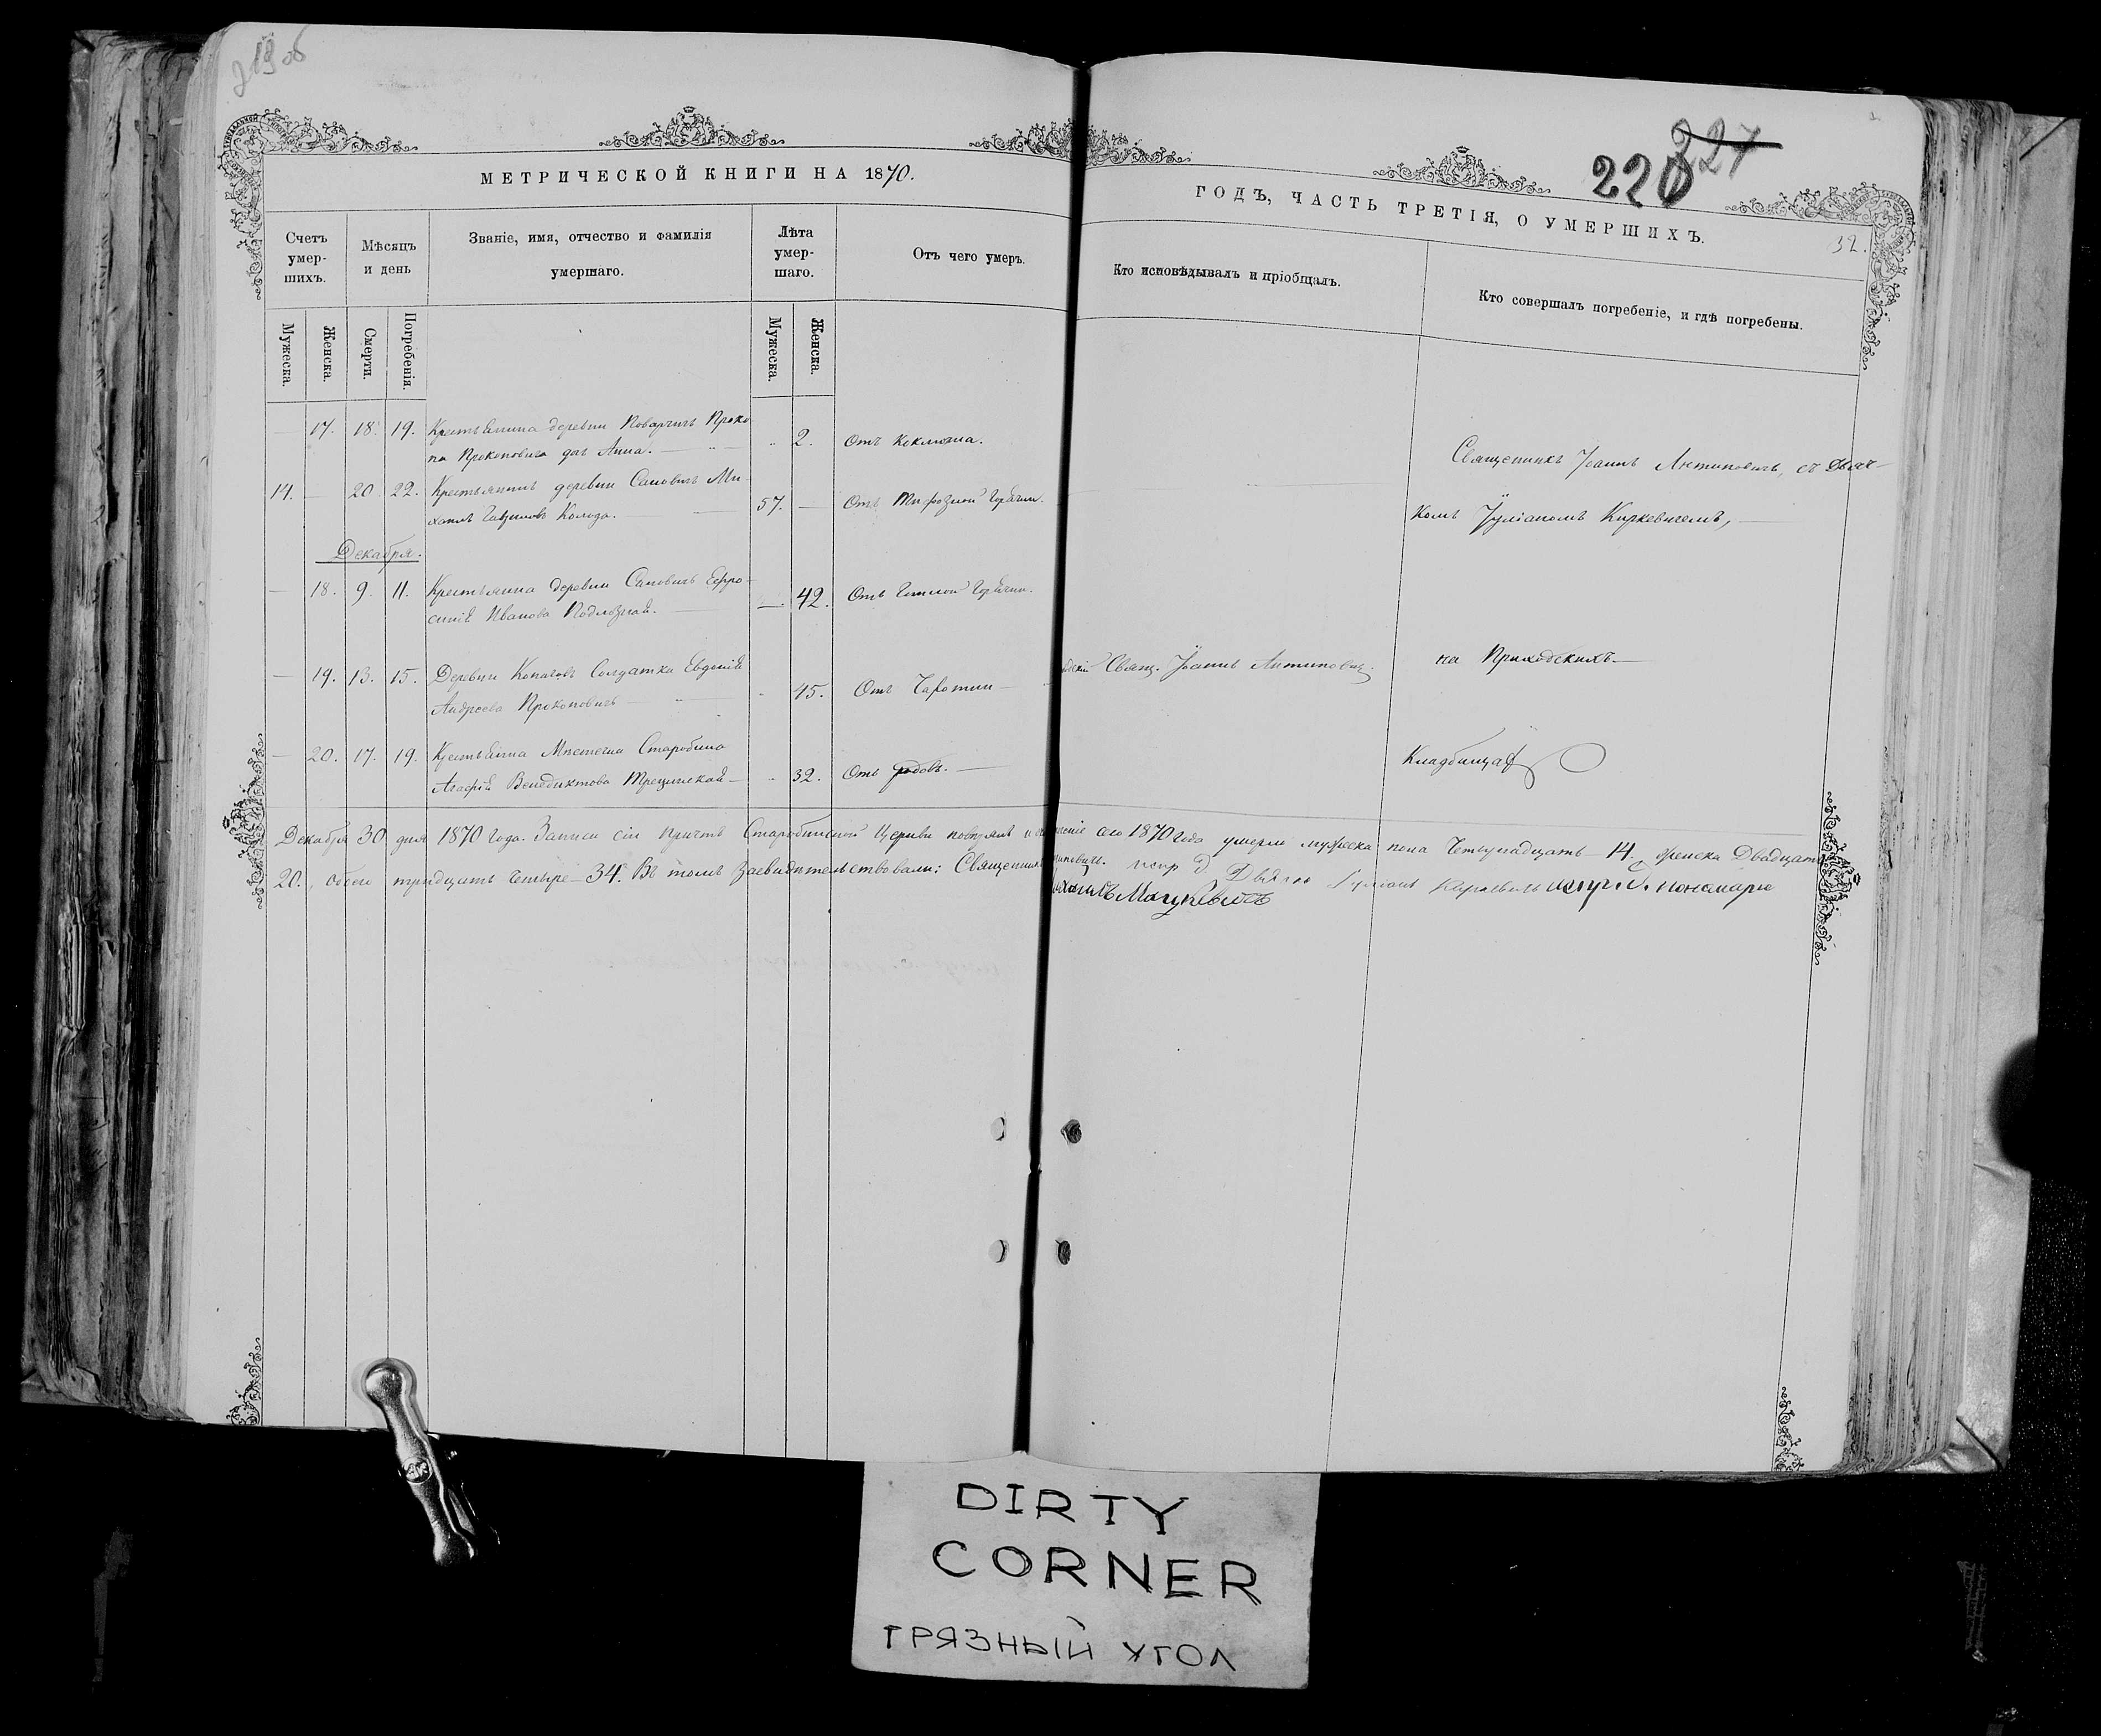 219 об
МЕТРИЧЕСКОЙ КНИГИ НА 1870.
ГОДЪ, ЧАСТЬ ТРЕТІЯ, О УМЕРШИХЪ.
220 227
32.
Счетъ умер-шихъ.
Мѣсяцъ и день
Званіе, имя, отчество и фамилія
умершаго.
Лѣта умер-шаго.
Отъ чего умеръ.
Кто исповѣдывалъ и пріобщалъ.
Кто совершалъ погребеніе, и гдѣ погребены.
Мужеска.
Женска.
Смерти.
Погребенія.
Мужеска.
Женска.
17. 18. 19. Крестьянина деревни Поварчичъ Проко
па Прокоповича дч Анна. 2. Отъ Коклюша.
Священникъ Іоаннъ Антиповичъ, съ Дьяч-
14. 20 22. Крестьянинъ деревни Сановичъ Ми-
хаилъ Гавриловъ Колода. 57. Отъ Тифозной Горячки.
комъ Іуліаномъ Киркевичемъ,
Декабря.
18. 9. 11. Крестьянка деревни Сановичъ Евфро-
синія Иванова 42. Отъ Гнилой Горячки.
19. 13. 15. Деревни Копацевъ Солдатка Евдокія
Андреева Прокоповичъ 45. Отъ Чахотки
Свящ. Іоаннъ Антиповичъ.
на Приходскихъ
20. 17. 19. Крестьянка Мѣстечка Старобина
Агафія Венедиктова 32. Отъ родовъ.
Кладбищах
Декабря 30 дня 1870 года. Записи сіи Причтъ Старобинской Церкви повѣрялъ и сего 1870 года умерли мужеска пола Четырнадцать 14. женска Двадцать
20. обоего тридцать четыре 34. Въ томъ Засвидѣтельствовали: Священникъ испр д Дьячка Іуліанъ Киркевичъ испр. д. пономаря
Мацкевичъ
DIRTY
CORNER
ГРЯЗНЫЙ УГОЛ